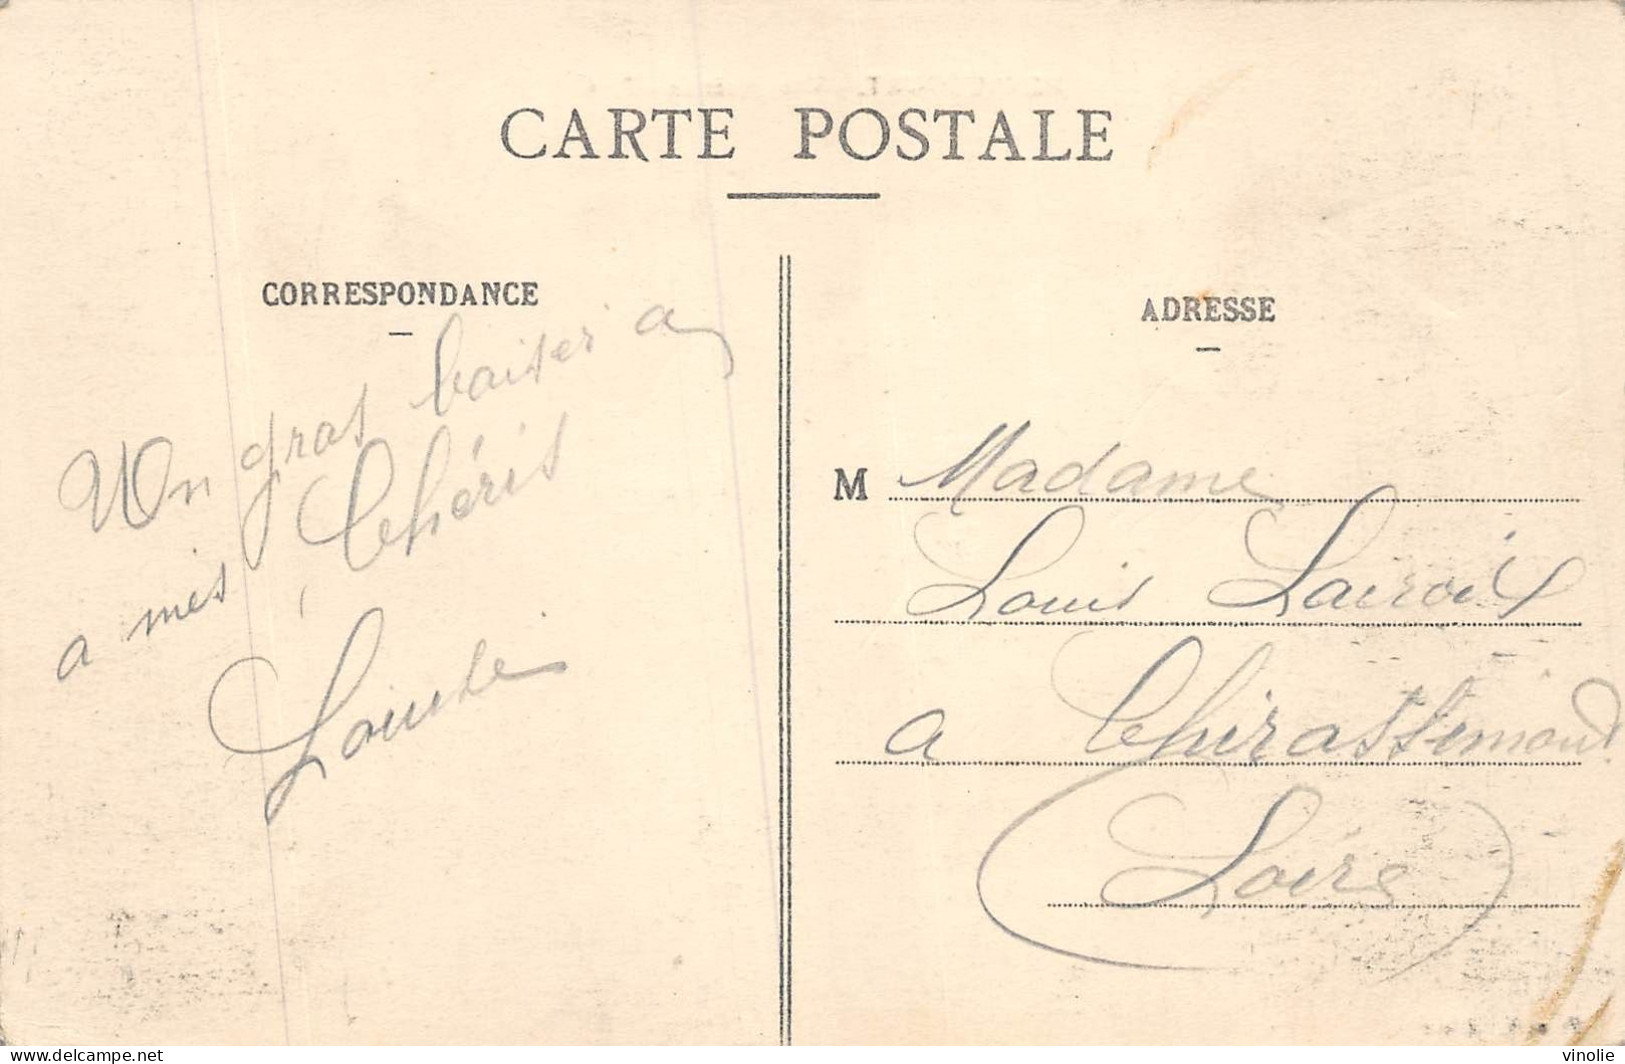 CARTE POSTALE
CORRESPONDANCE
Un gros baiser a
a mes Chéris
Louise
ADRESSE
M Madame
Louis Lacroix
a Chirassimont
(Loire)
delcampe.net
vinolie